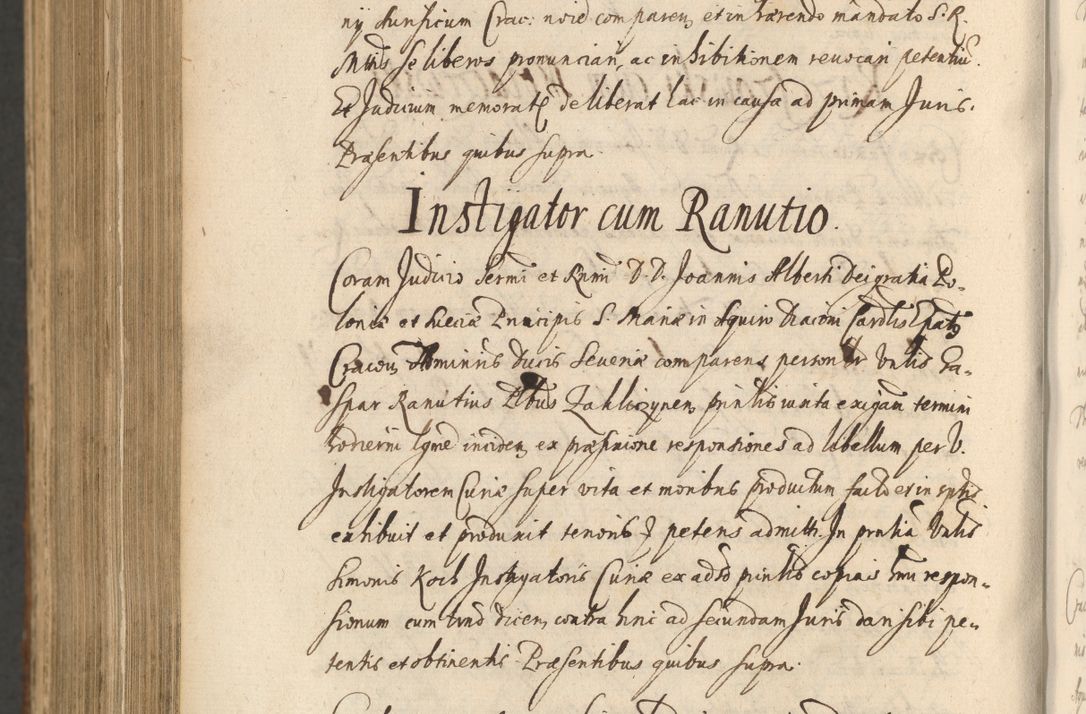 ny Hunsicum Crac: noie comparen, et inhærendo mandato S. R.
Mtis se liberos pronunciari, ac inhibitionem revocari petentiu.
Et Judicium memoratu deliberat hac in causa ad primam Juris.
Præsentibus quibus supra.
Instigator cum Ranutio.
Coram Judicio Sermi et Rnmi D. D. Joannis Alberti Dei gratia Po-
loniæ et Sueciæ Principis S. Mariæ in Aquiro Diaconi Cardlis Epatq
Cracovi Ducis Severiæ comparens personlr Vnlis Ga-
spar Ranutius Plbus Zakliczynen, printlis iuxta exigam termini
hodierni ex præfixione responsiones ad libellum per V.
Instigatorem Curiæ super vita et moribus productum facto et in sptis
exhibuit et produxit tenoris & petens admitti. In prntia Vnlis
Simonis Koch Instigatoris Curiæ ex adso printlis copias respon-
sionum cum tmo dicen, contra hinc ad secundam Juris dari sibi pe-
tentis et obtinentis. Præsentibus quibus supra.